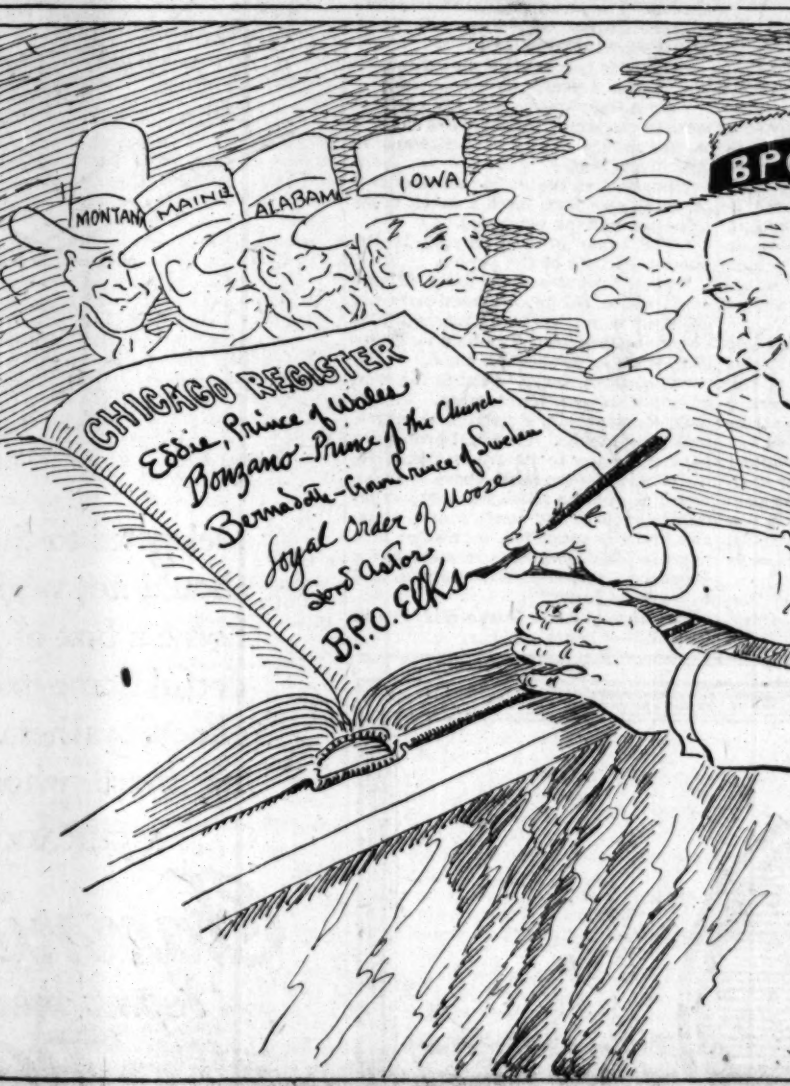 MONTAN
MAINE
ALABAM
IOWA
BPO
CHICAGO REGISTER
Eddie, Prince of Wales
Bonzano - Prince of the Church
Bernadotte - Crown Prince of Sweden
Loyal Order of Moose
Lord Astor
B.P.O. Elks